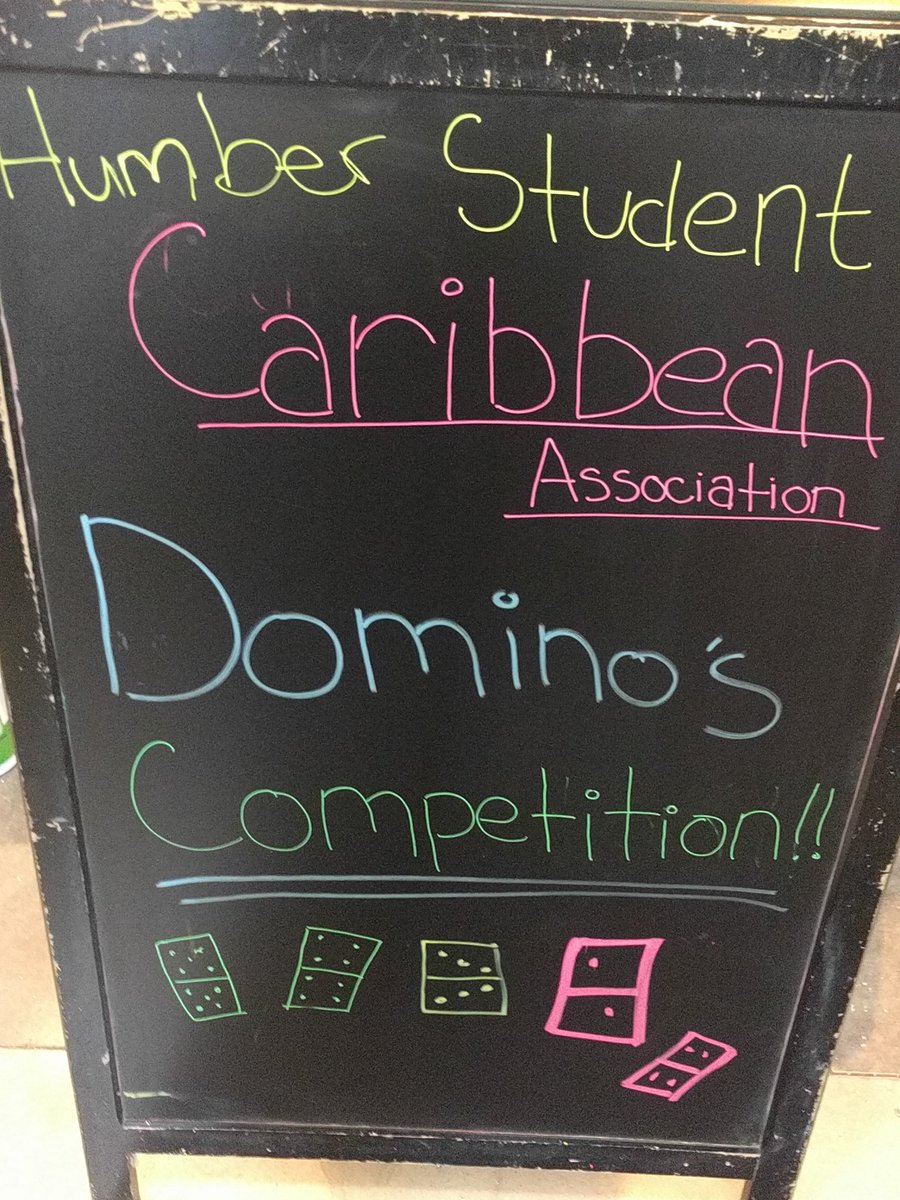 Humber Student
Caribbean
Association
Domino's
Competition!!